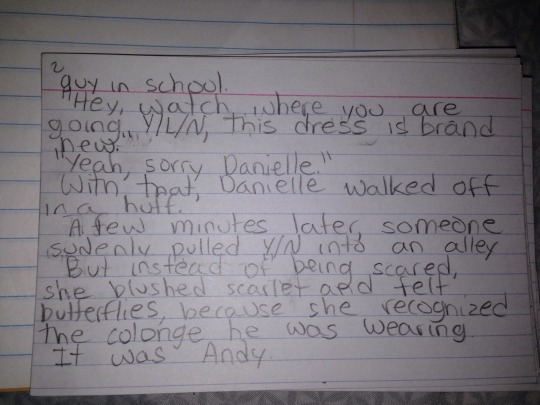 2
guy in school.
"Hey, watch where you are
going, Y/L/N, this dress is brand
new."
"Yeah, sorry Danielle."
With that, Danielle walked off
in a huff.
A few minutes later, someone
sudenly pulled Y/N into an alley
But instead of being scared,
she blushed scarlet aed felt
butterflies, because she recognized
the colonge he was wearing.
It was Andy.